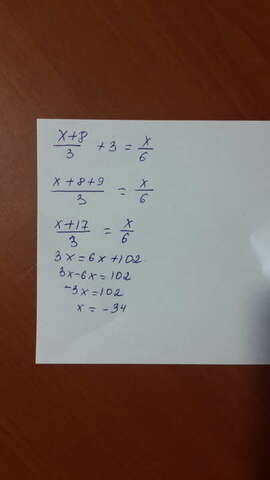 (x+8)/3 + 3 = x/6
(x+8+9)/3 = x/6
(x+17)/3 = x/6
3x=6x+102
3x-6x=102
-3x=102
x = -34